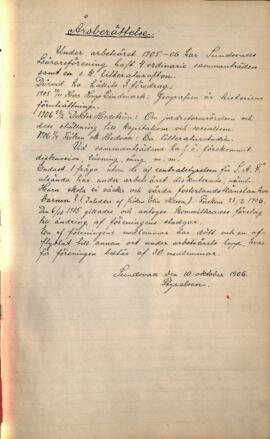 Årsberättelse.
Under arbetsåret 1905-06 har Sundsvalls
Lärareförening haft 4 ordinarie sammanträden
samt en s. k. litteraturafton.
Därvid ha hållits 3 föredrag:
1905 Herr Hugo Lundmark: Geografien är historiens
förutsättning.
1906 Doktor Hedström: Om jordreformrörelsen och
dess ställning till kapitalism och socialism.
1906 Fröken Hedvik: Om litteraturstudier.
Vid sammanträdena ha f. ö. förekommit
diskussion, läsning, sång m. m.
Endast 1 fråga utom de af centralstyrelsen för S. A. F.
utsända har under arbetsåret diskuterats, näml.
Huru skola vi väcka och vårda fosterlandskänslan hos
barnen? (Inledes af fröken Elin
Den 6/10 1905 gillades och antogos kommitterades förslag
till ändring af föreningens stadgar.
En af föreningens medlemmar har dött och en af-
flyttat till annan ort under arbetsårets lopp, hvar-
för föreningen består af 30 medlemmar.
Sundsvall den 10 oktober 1906.
Styrelsen.